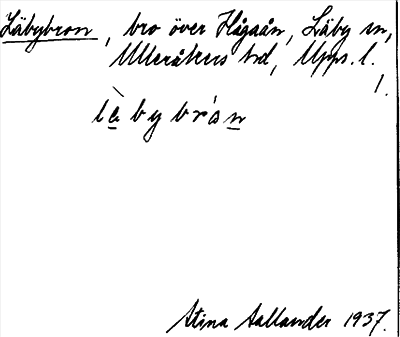 Läbybron, bro över Hågaån, Läby sn,
Ulleråkers hd, Upps. l.
1.
lèbybrón
Stina Sallander 1937.